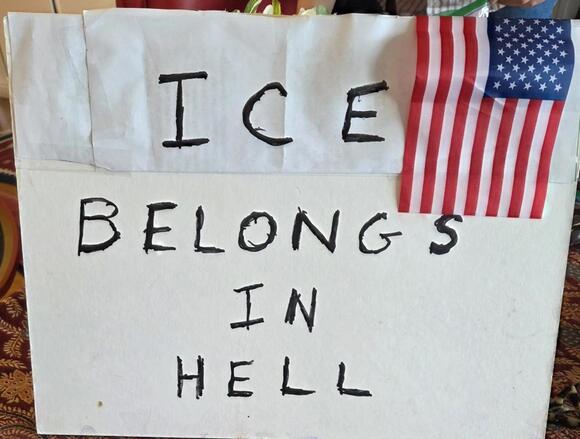 ICE
BELONGS
IN
HELL